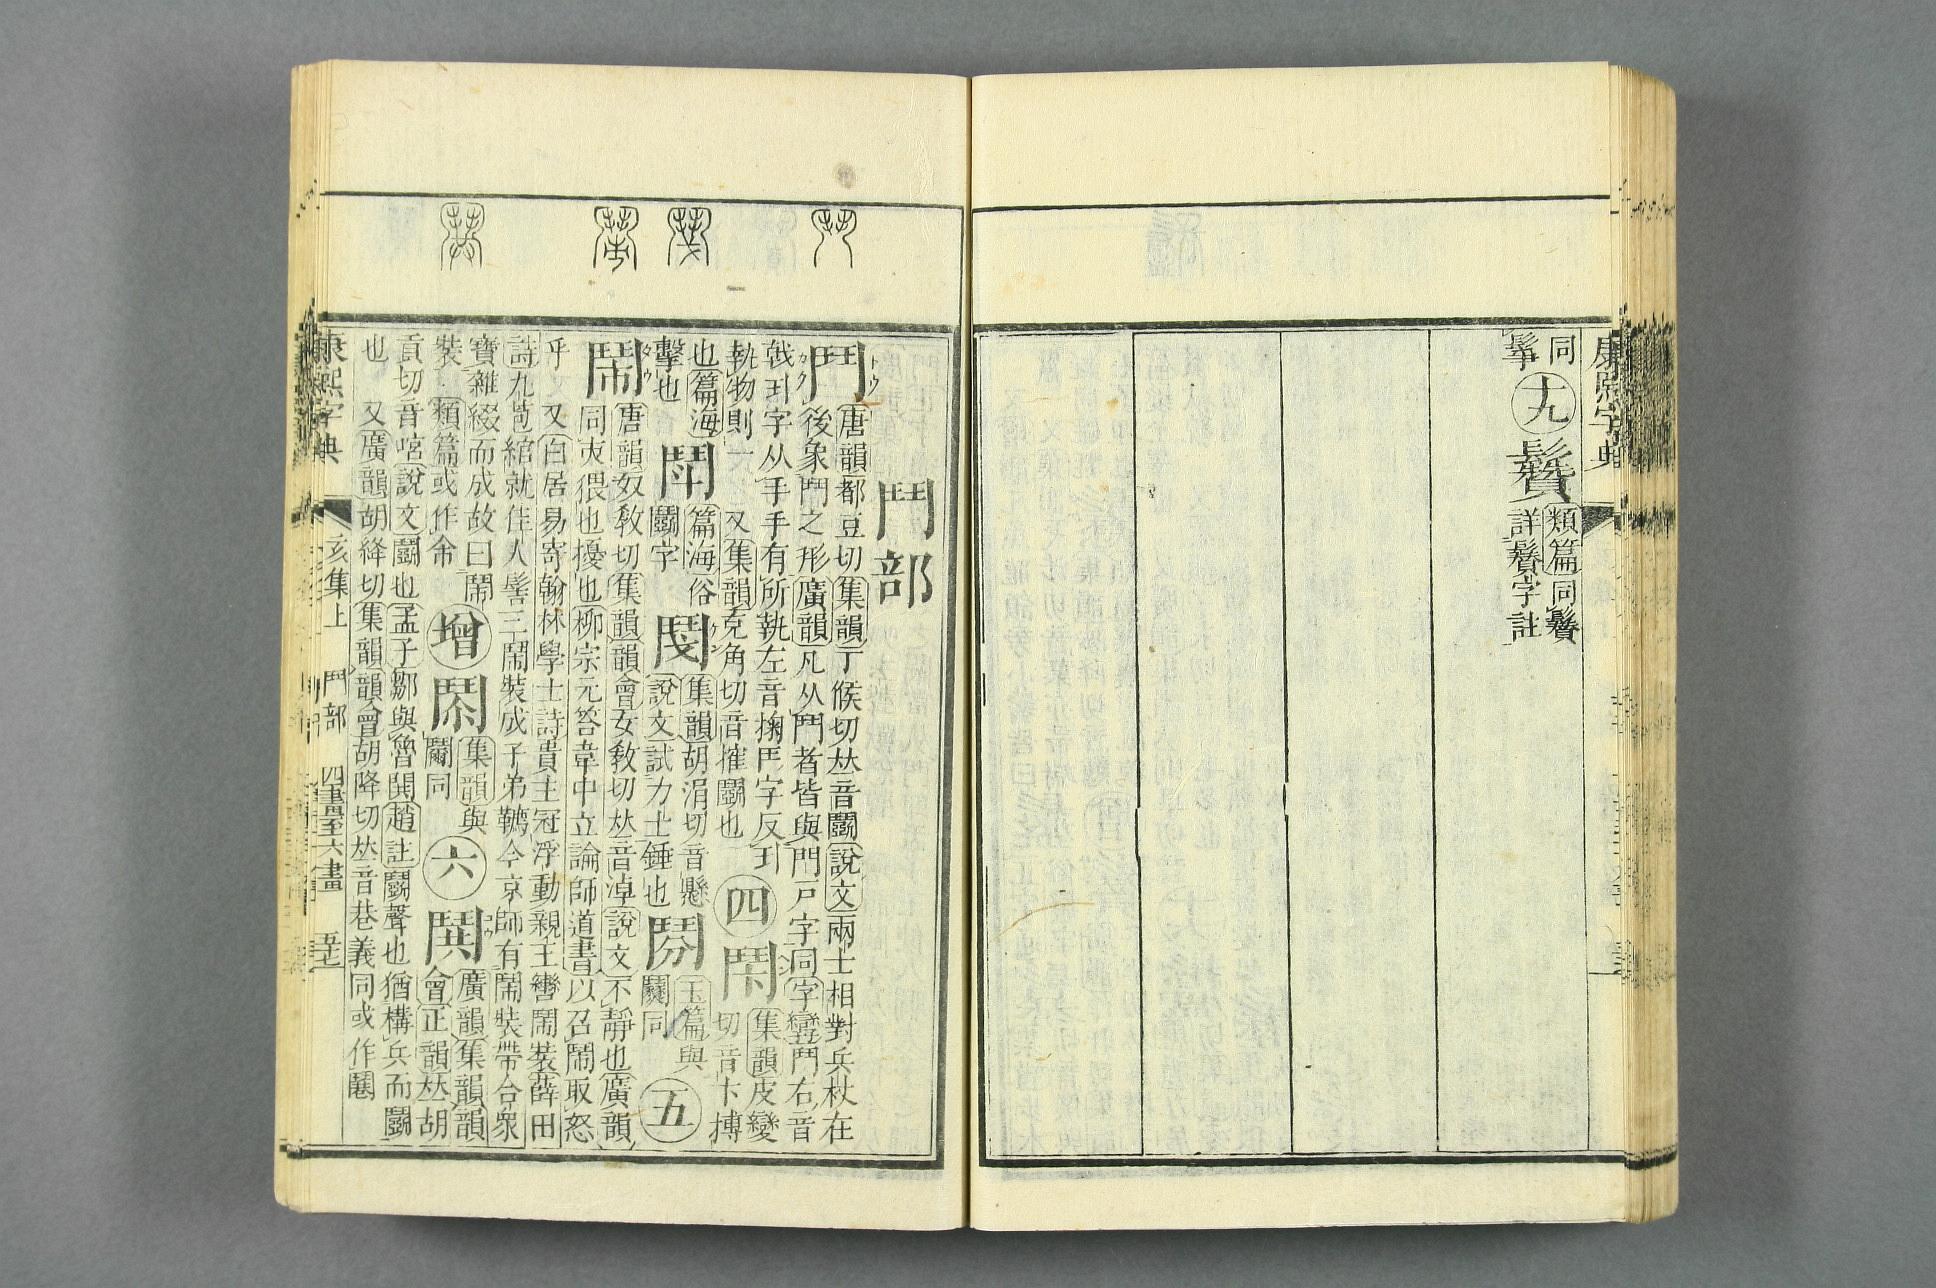 康熙字典
同 十九 鬢 類篇同鬢
髴 詳鬢字註
鬥部
鬥 唐韻都豆切集韻丁候切𠀤音鬭說文兩士相對兵杖在
後象鬥之形廣韻凡从鬥者皆與門戶字同字彙鬥右音
戟丮字从手手有所執左音掬𠃨字反丮
執物則一 又集韻克角切音搉鬭也 四 鬦 集韻皮變
切音卞搏
也篇海 鬪 篇海俗
鬭字
擊也
集韻胡涓切音懸
說文試力士錘也
鬮 玉篇與
鬮同
五
鬧 唐韻奴敎切集韻韻會女敎切𠀤音淖說文不靜也廣韻
同夾猥也擾也柳宗元答韋中立論師道書以召鬧取怒
乎 又白居易寄翰林學士詩貴主冠浮動親王轡鬧裝薛田
詩九苞綰就佳人髻三鬧裝成子弟韉今京師有鬧裝帶合衆
寶雜綴而成故曰鬧
裝 類篇或作
增
集韻與
鬮同
六 鬨 廣韻集韻韻
會正韻𠀤胡
貢切音哄說文鬭也孟子鄒與魯鬨趙註鬭聲也猶構兵而鬭
也 又廣韻胡絳切集韻韻會胡降切𠀤音巷義同或作鬩
康熙字典 亥集上 鬥部 四畫至六畫